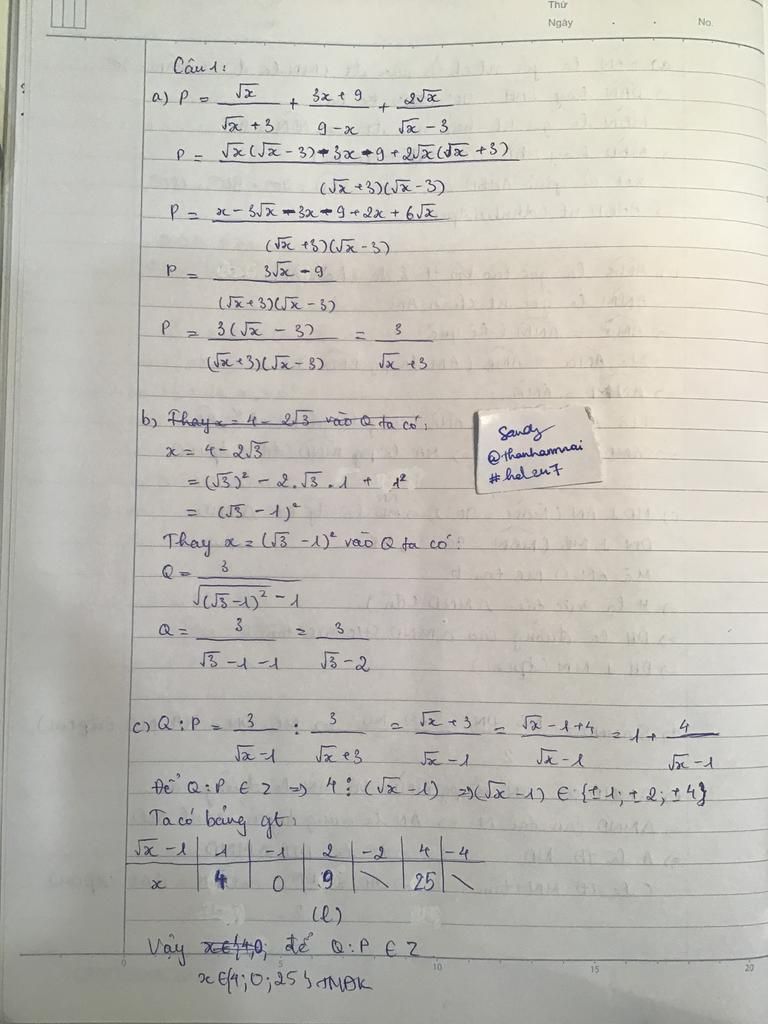 Thứ
Ngày . . No.
Câu 1:
a) P = √x/(√x + 3) + (3x + 9)/(9 - x) + 2√x/(√x - 3)
P = (√x(√x - 3) - 3x - 9 + 2√x(√x + 3))/((√x + 3)(√x - 3))
P = (x - 3√x - 3x - 9 + 2x + 6√x)/((√x + 3)(√x - 3))
P = (3√x - 9)/((√x + 3)(√x - 3))
P = 3(√x - 3)/((√x + 3)(√x - 3)) = 3/(√x + 3)
b) Thay x = 4 - 2√3 vào Q ta có:
x = 4 - 2√3
= (√3)² - 2.√3.1 + 1²
= (√3 - 1)²
Thay x = (√3 - 1)² vào Q ta có:
Q = 3/(√(√3 - 1)² - 1)
Q = 3/(√3 - 1 - 1) = 3/(√3 - 2)
Sandy
@thanhamnai
#hd247
c) Q : P = 3/(√x - 1) : 3/(√x + 3) = (√x + 3)/(√x - 1) = (√x - 1 + 4)/(√x - 1) = 1 + 4/(√x - 1)
Để Q : P ∈ Z => 4 ⋮ (√x - 1) => (√x - 1) ∈ {±1; ±2; ±4}
Ta có bảng gt:
√x - 1 | 1 | -1 | 2 | -2 | 4 | -4
x | 4 | 0 | 9 | \ | 25 | \
(l)
Vậy x ∈ {4; 0; để Q : P ∈ Z
x ∈ {4; 0; 25} TMĐK
0 5 10 15 20